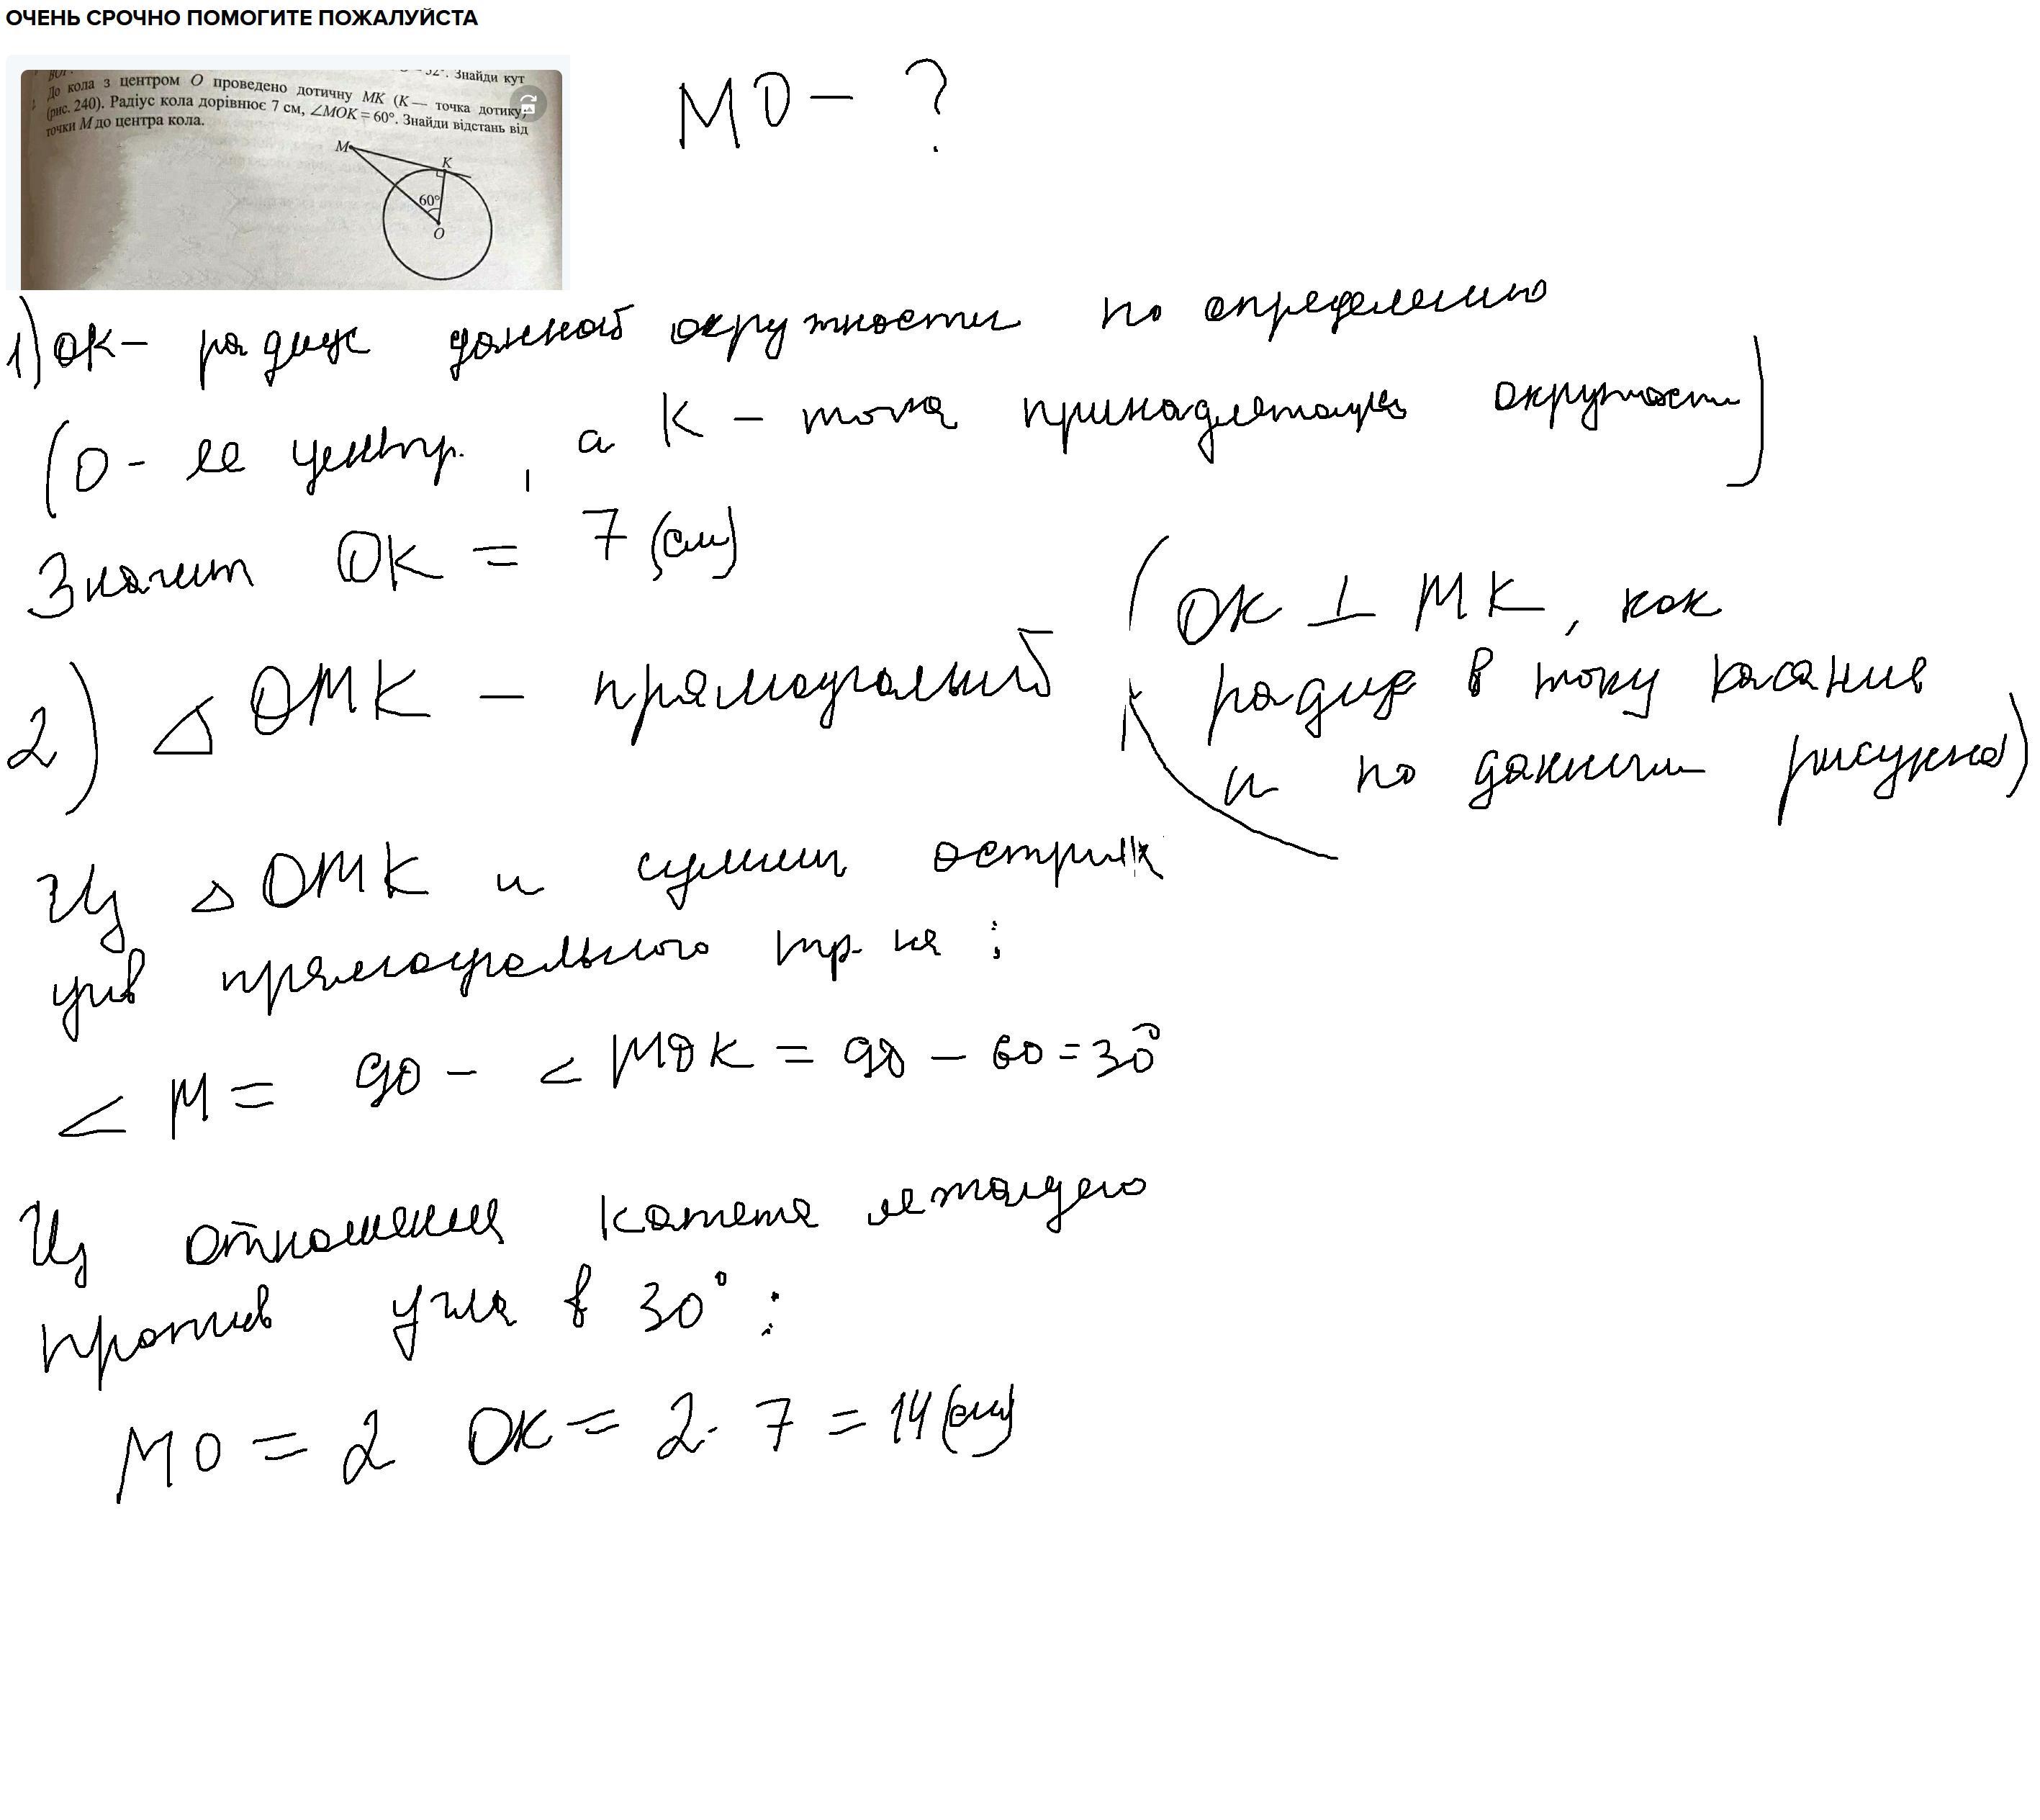 ОЧЕНЬ СРОЧНО ПОМОГИТЕ ПОЖАЛУЙСТА
= 52°. Знайди кут
До кола з центром O проведено дотичну MK (K — точка дотику)
(рис. 240). Радіус кола дорівнює 7 см, ∠MOK = 60°. Знайди відстань від
точки M до центра кола.
M
K
60°
O
MO - ?
1) OK - радиус данной окружности по определению
(O - ее центр, а K - точка принадлежащая окружности)
Значит OK = 7 (см)
2) △ OMK - прямоугольный
(OK ⊥ MK, как
радиус в точку касания
и по данным рисунка)
Из △ OMK и суммы острых
углов прямоугольного тр-ка :
∠ M = 90 - ∠ MOK = 90 - 60 = 30°
Из отношения катета лежащего
против угла в 30° :
MO = 2 OK = 2 · 7 = 14 (см)